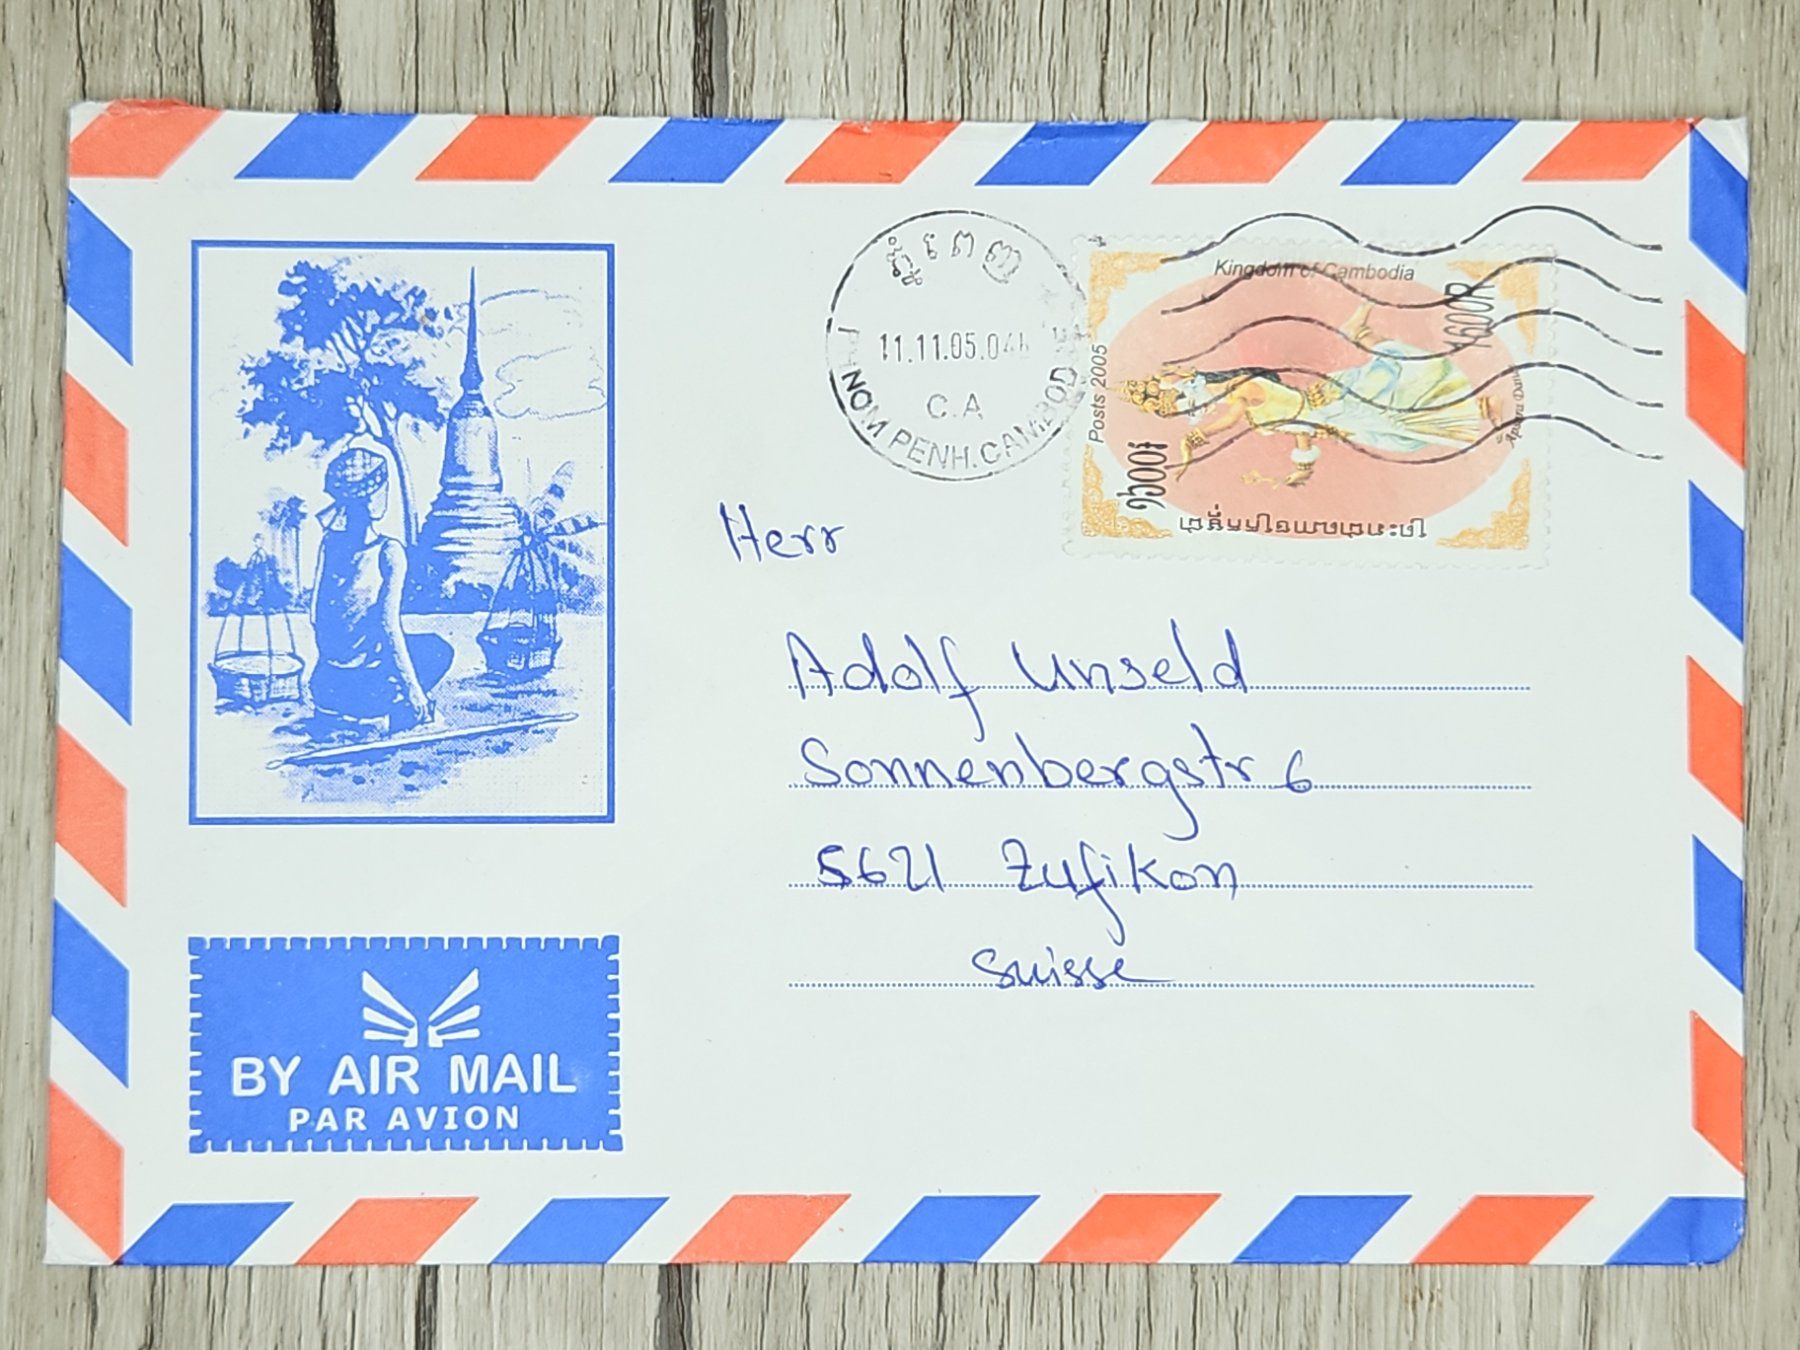 ភ្នំពេញ
11.11.05.04
C.A
PHNOM PENH.CAMBOD
Kingdom of Cambodia
Posts 2005
1600R
១៦០០៛
Herr
Adolf Unseld
Sonnenbergstr 6
5621 Zufikon
Suisse
BY AIR MAIL
PAR AVION